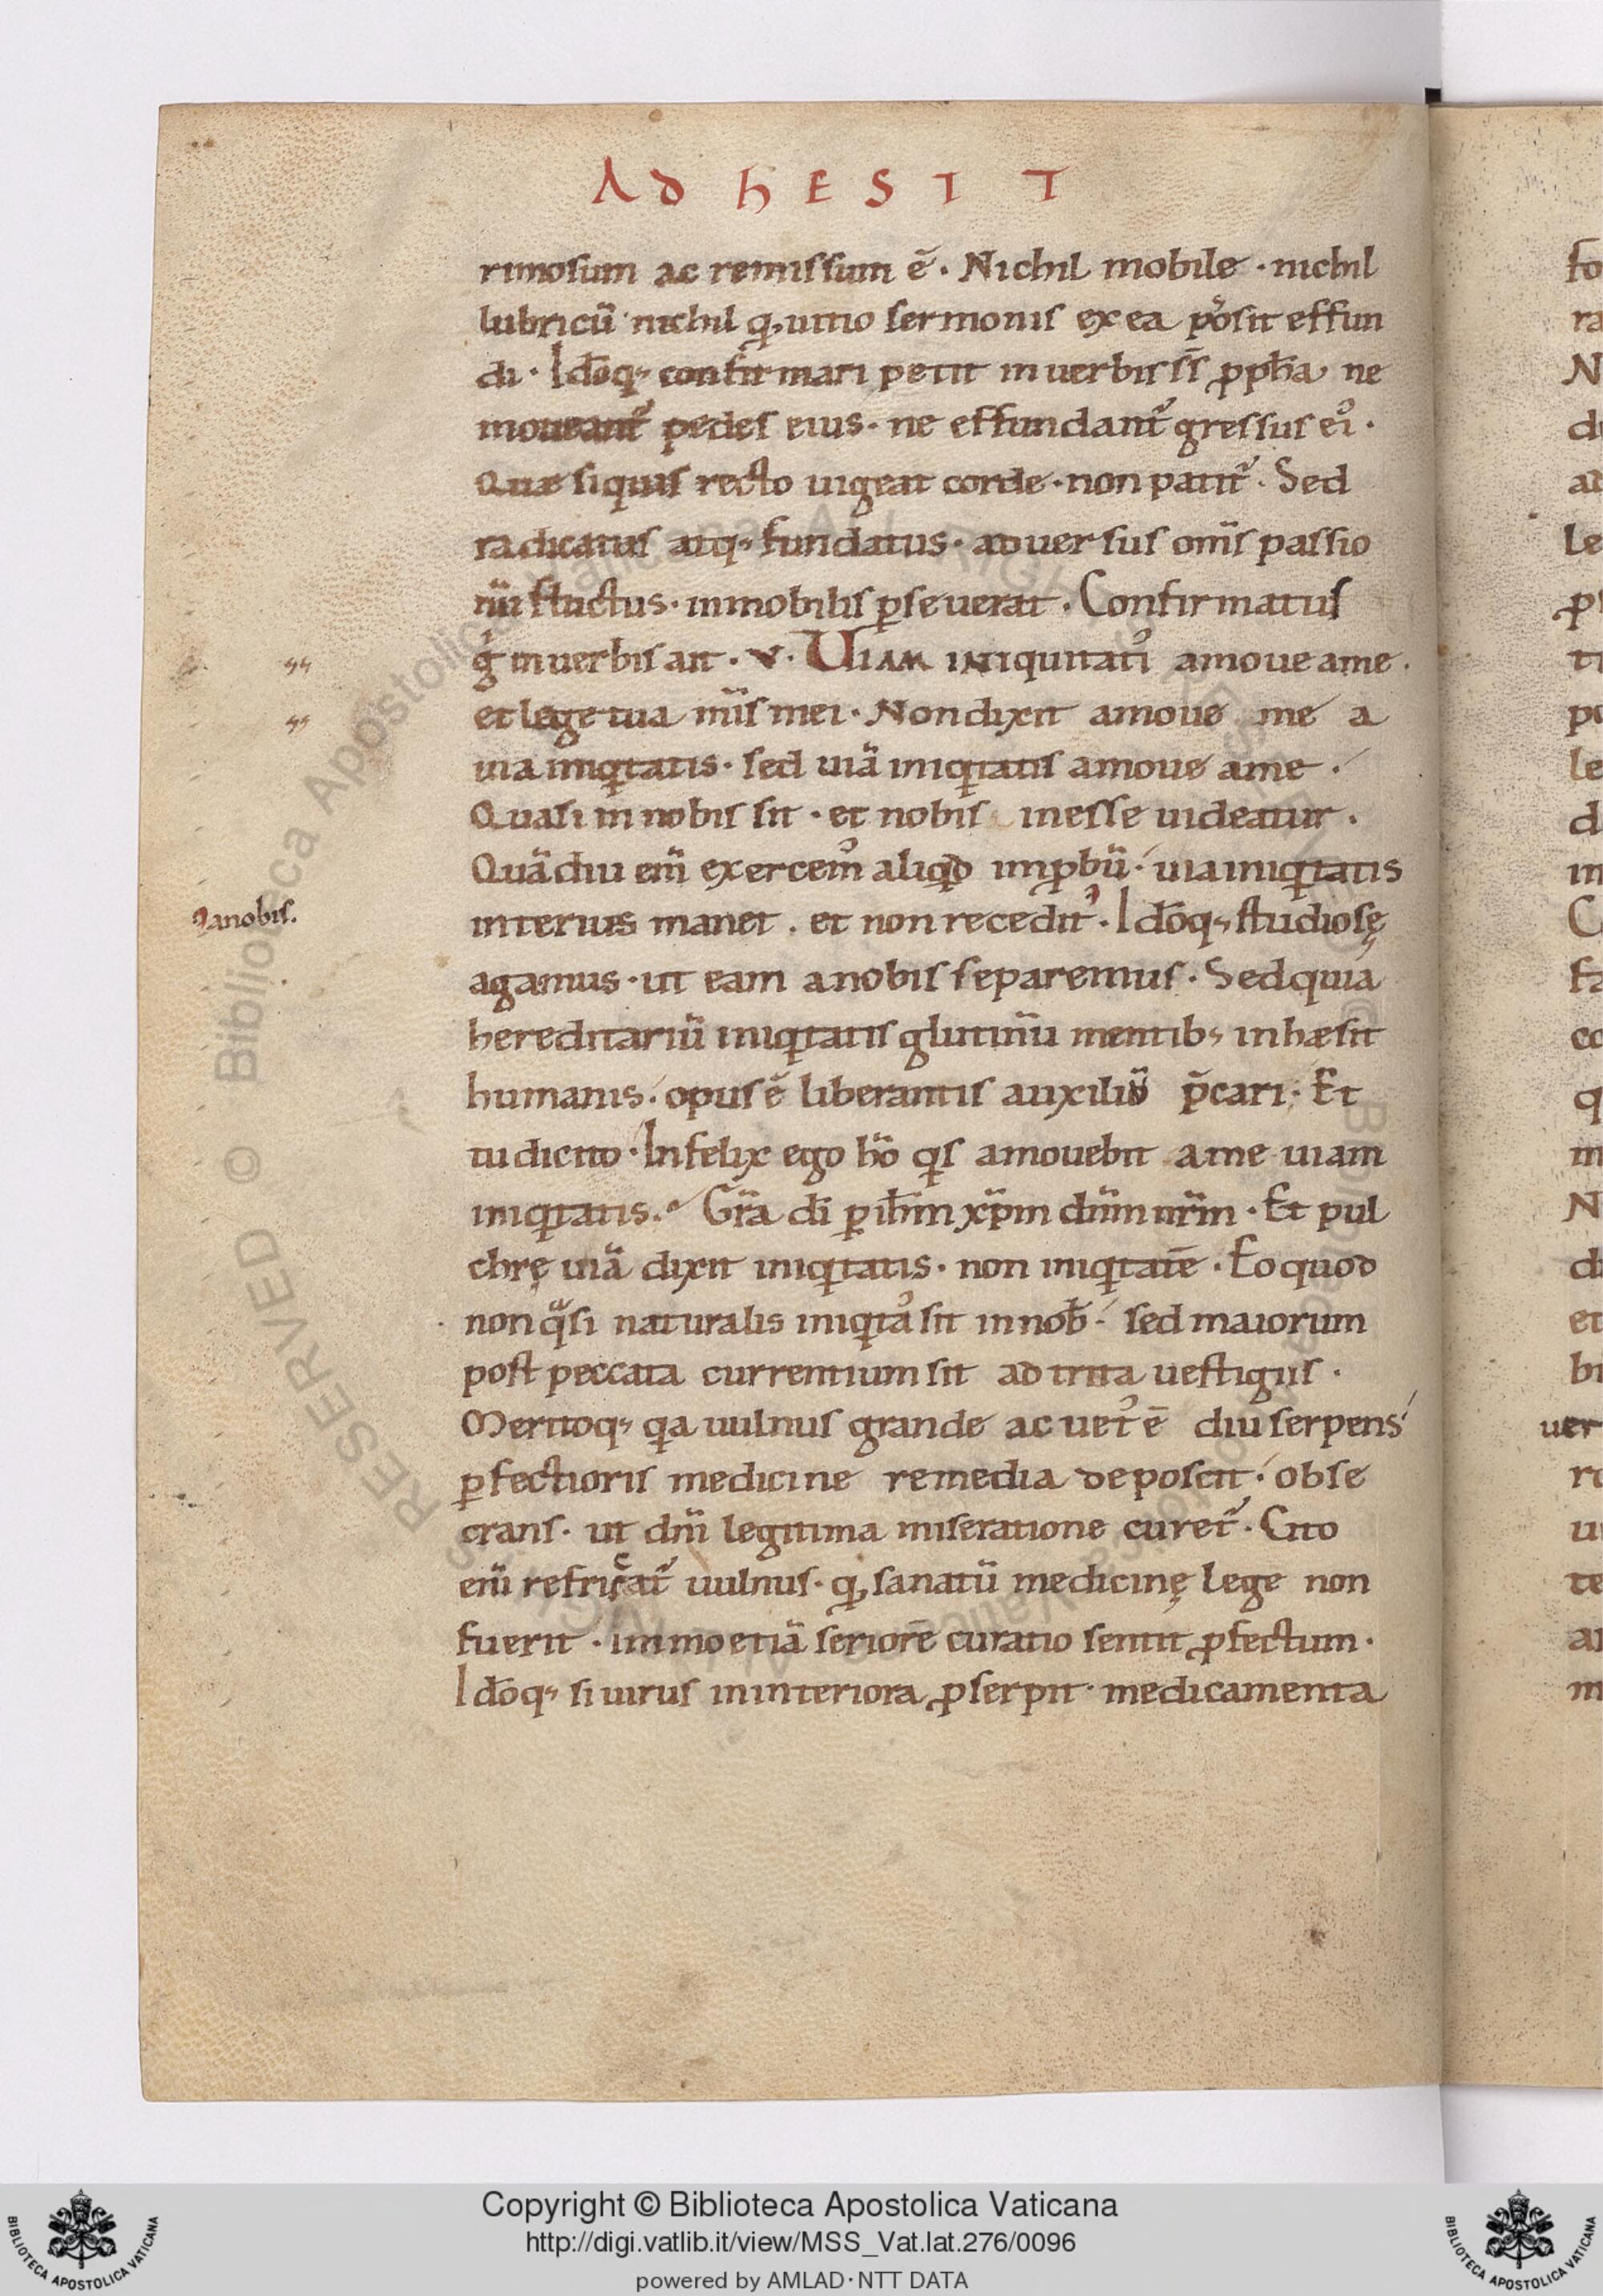 AD HESIT
rimosum ac remissum ē. Nichil mobile. nichil
lubricū nichil ꝙ uitio sermonis ex ea possit effun
di. Idōq; confirmari petit in uerbis s̄s̄ ꝓph̄a ne
moueant᷑ pedes eius. ne effundant᷑ gressus eiꝰ.
Quæ siquis recto uigeat corde. non patit᷑. Sed
radicatus atq; fundatus. aduersus om̄s passio
nū fluctus. inmobilis ꝑseuerat. Confirmatus
gͦ in uerbis ait. V. UIAM INIQuitatiꝰ amoue a me.
et lege tua m̄is mei. Non dixit amoue me a
uia iniqͥtatis. sed uiā iniqͥtatis amoue a me.
Quasi in nobis sit. et nobis inesse uideatur.
Quādiu em̄ exercemꝰ aliqͥd inꝓbū. uia iniqͥtatis
interius manet. et non recedit. Idōq; studiosę
a nobis.
agamus. ut eam a nobis separemus. Sed quia
hereditariū iniqͥtatis glutinū mentib; inhæsit
humanis. opus ē liberantis auxiliū p̄cari. Et
tu dicito. Infelix ego hō qͥs amouebit a me uiam
iniqͥtatis. Gr̄a dī ꝑ ih̄m xp̄m dn̄m nr̄m. Et pul
chrę uiā dixit iniqͥtatis. non iniqͥtatē. Eo quod
non qͣsi naturalis iniqͥtaꝰ sit in nob̄. sed maiorum
post peccata currentium sit ad trita uestigiis.
Meritoq; qͥa uulnus grande ac uetꝰ ē diu serpens
ꝑfectioris medicine remedia deposcit. obse
crans. ut dn̄i legitima miseratione curet᷑. Cito
em̄ refricat᷑ uulnus. ꝙ sanatū medicinę lege non
fuerit. immo etiā seriorē curatio sentit ꝓfectum.
Idōq; si uirus in interiora ꝓserpit. medicamenta
Copyright © Biblioteca Apostolica Vaticana
http://digi.vatlib.it/view/MSS_Vat.lat.276/0096
powered by AMLAD·NTT DATA
BIBLIOTECA APOSTOLICA VATICANA
BIBLIOTECA APOSTOLICA VATICANA